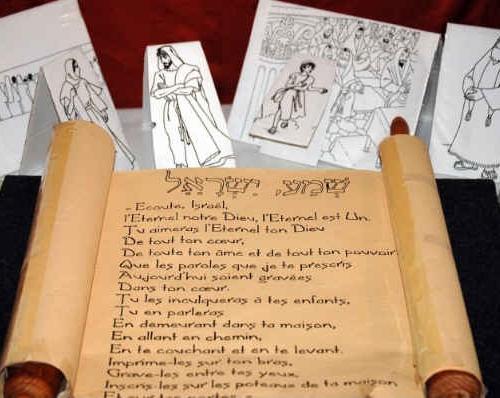 שְׁמַע, יִשְׂרָאֵל
- Ecoute, Israël,
l'Eternel notre Dieu, l'Eternel est Un.
Tu aimeras l'Eternel ton Dieu
De tout ton cœur,
De toute ton âme et de tout ton pouvoir
Que les paroles que je te prescris
Aujourd'hui soient gravées
Dans ton cœur.
Tu les inculqueras à tes enfants,
Tu en parleras
En demeurant dans ta maison,
En allant en chemin,
En te couchant et en te levant.
Imprime-les sur ton bras,
Grave-les entre tes yeux,
Inscris-les sur les poteaux de ta maison
Et sur tes portes. »